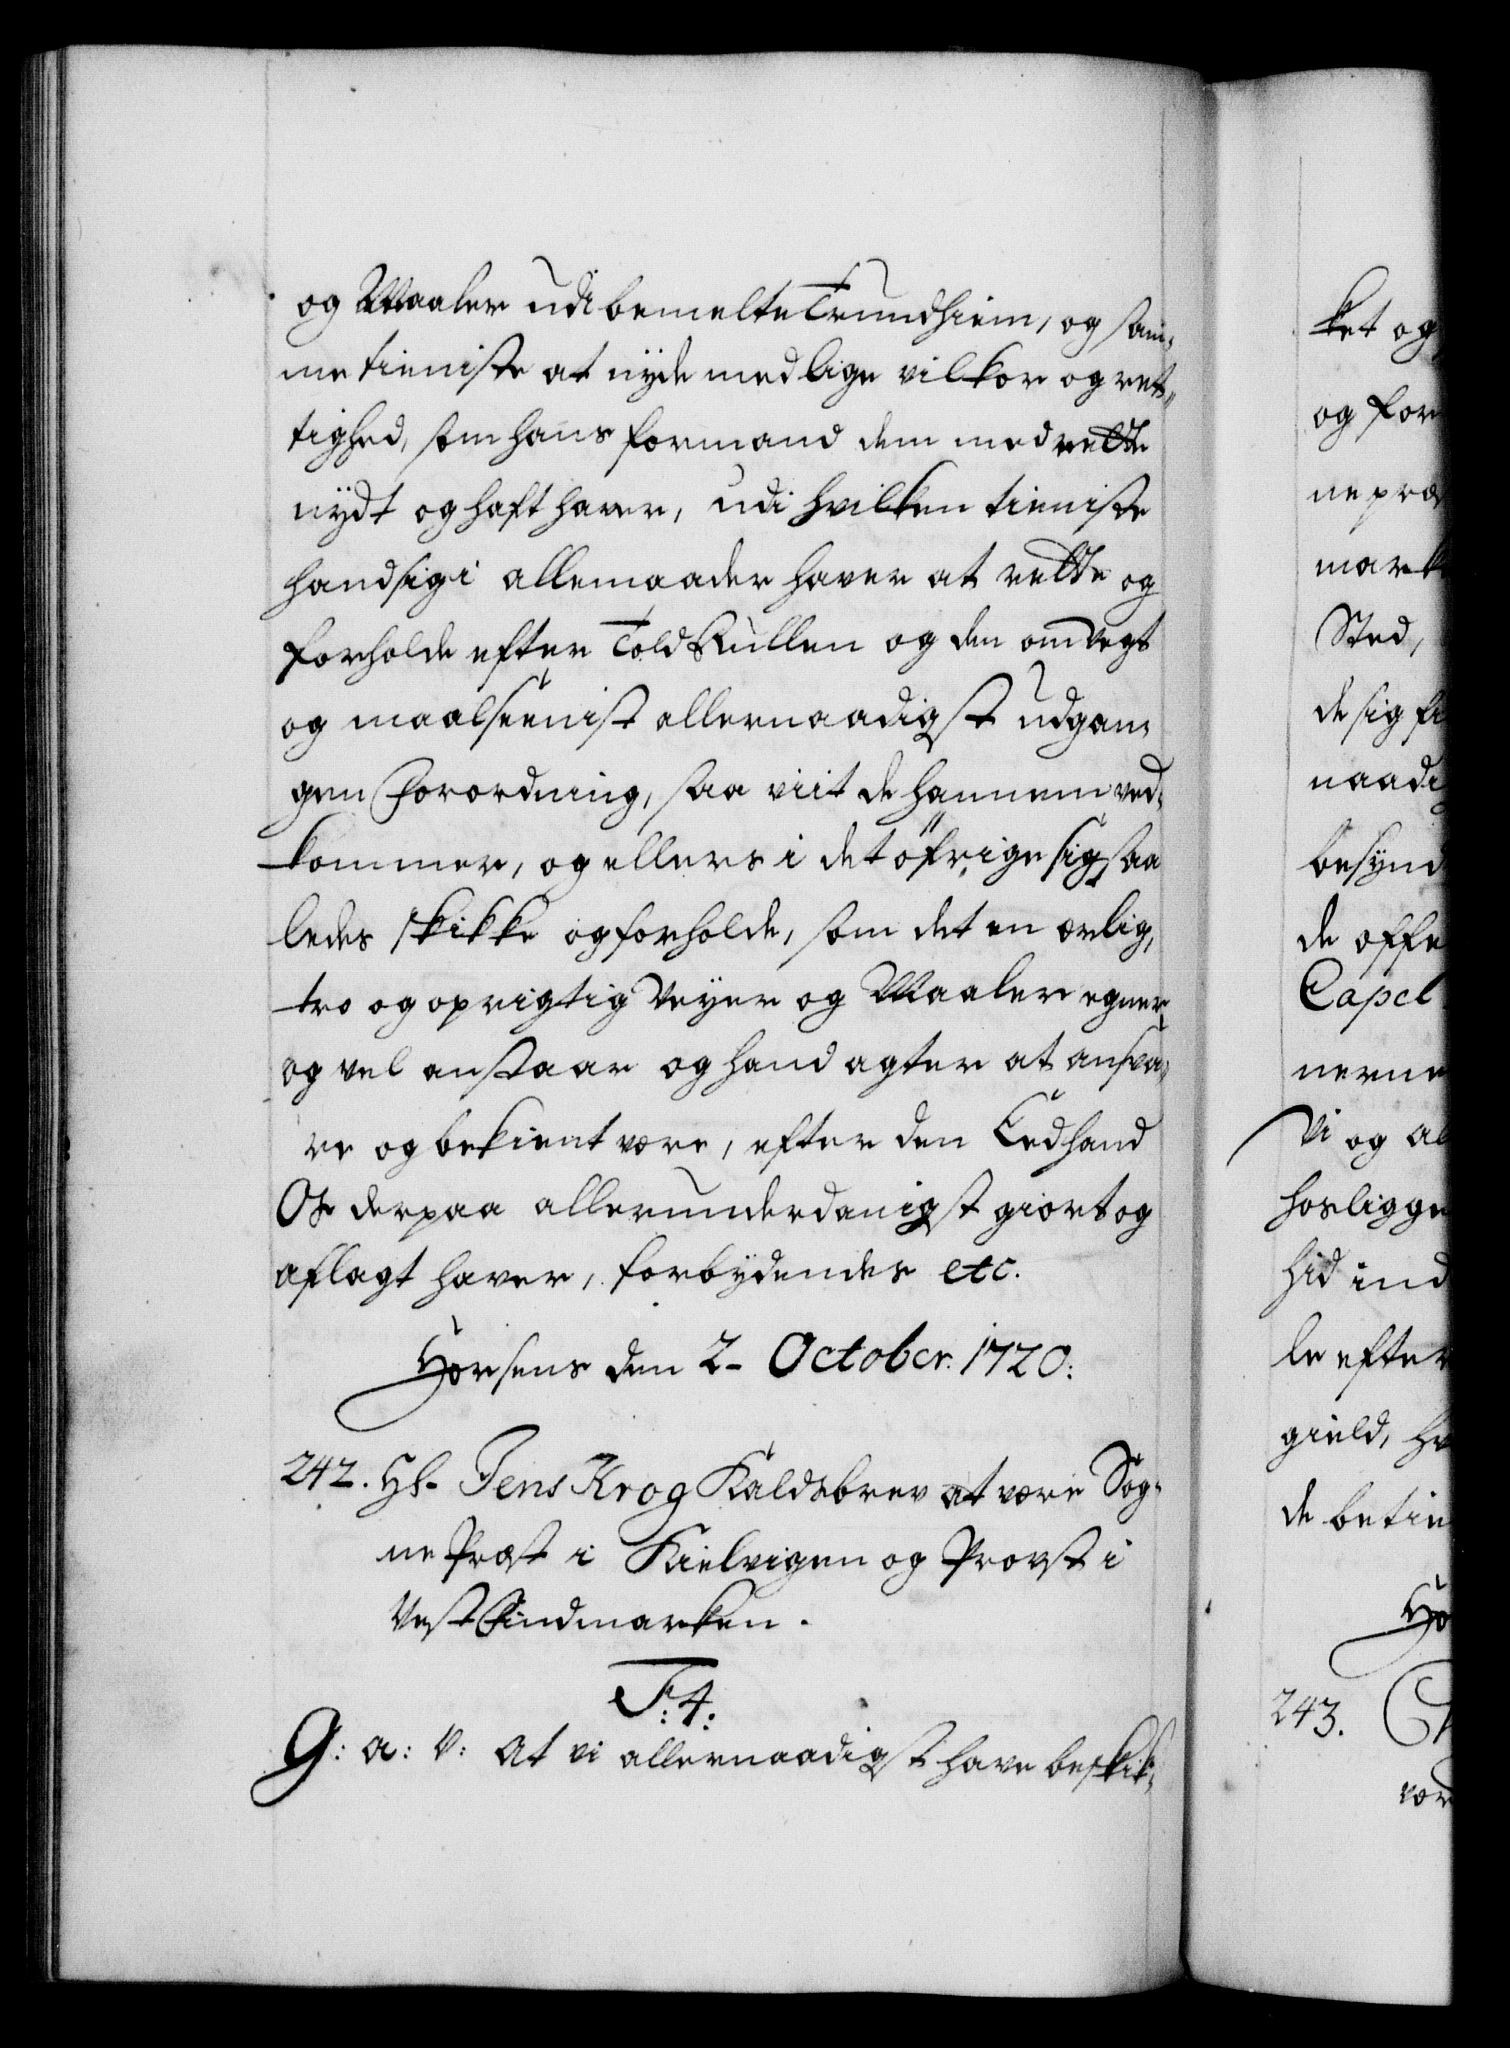 og Maaler udi bemelte Trundhiem, og sam-
me tieniste at nyde med lige vilkor og ret-
tighed, som hans formand dem med rette
nydt og haft haver, udi hvilken tieniste
hand sig i allemaader haver at rette og
forholde efter Told Rullen og den om Vegt
og maalseenist allernaadigst udgan-
gen Forordning, saa viit de hannem ved-
kommer, og ellers i det øfrige sig saa
ledes skikke og forholde, som det en ærlig,
tro og oprigtig Veyer og Maaler egner
og vel anstaar og hand agter at ansva-
re og bekient være, efter den Eed hand
Os derpaa allerunderdanigst giort og
aflagt haver, forbydendes etc.
Horsens den 2- October. 1720:
242. Hr. Jens Krog Kaldsbrev at være Sog-
ne Præst i Kielvigen og Provst i
Vest Findmarken.
F: 4:
G: a: V: At vi allernaadigst have beskik-
ket og
og for
ne præ
mark
Sted,
de sig fi
naadi
besynd
de offe
Capel
nerne
Vi og al
hosligge
hid ind
le efter
gield, hv
de betie
Ho
243.
vær